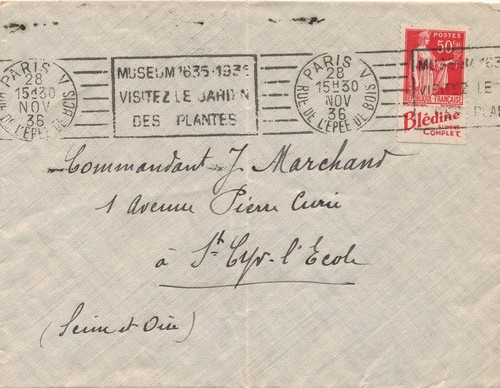 PARIS V
28
15H30
NOV
36
RUE DE L'ÉPÉE DE BOIS
MUSEUM 1635-1935
VISITEZ LE JARDIN
DES PLANTES
PARIS V
28
15H30
NOV
36
RUE DE L'ÉPÉE DE BOIS
MUSEUM
VISITEZ LE
DES PLANT
POSTES
50c
RÉPUBLIQUE FRANÇAISE
Blédine
ALIMENT
COMPLET
Commandant J. Marchand
1 Avenue Pierre Curie
à St Cyr-l'Ecole
(Seine et Oise)